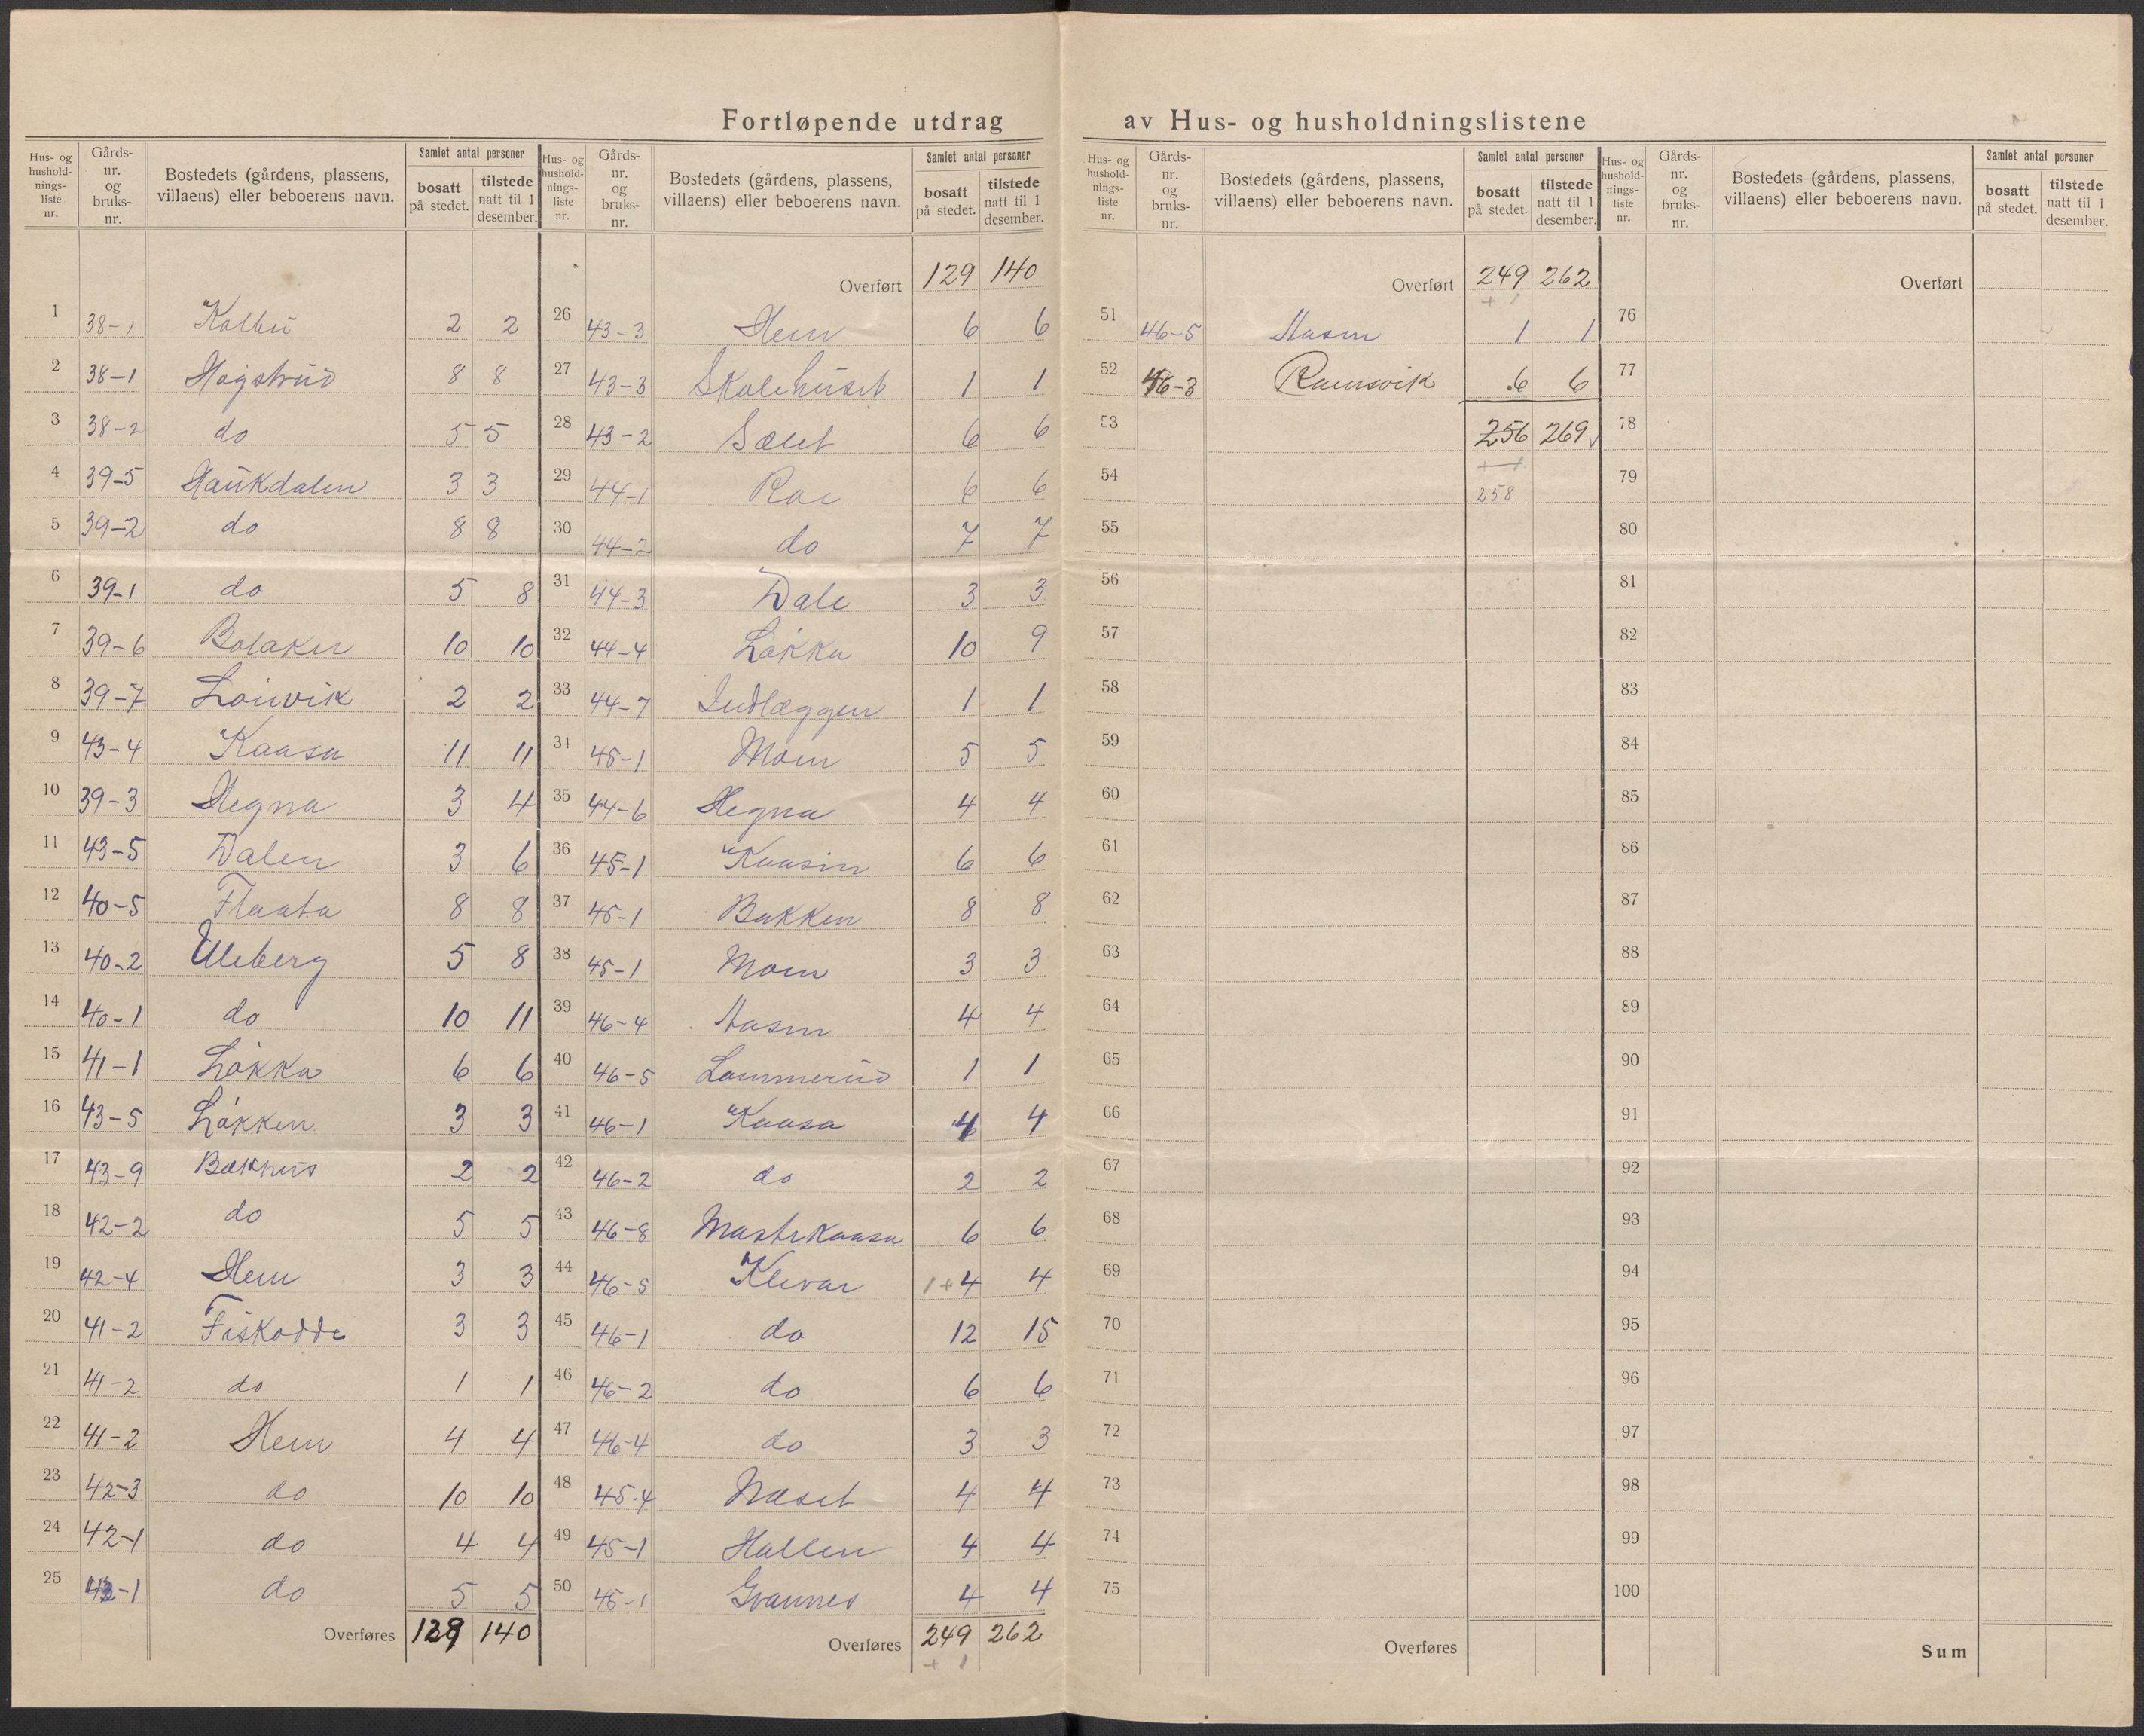 Fortløpende utdrag av Hus- og husholdningslistene
Hus- og hushold-nings-liste nr. Gårds-nr. og bruks-nr. Bostedets (gårdens, plassens, villaens) eller beboerens navn. Samlet antal personer bosatt på stedet. tilstede natt til 1 desember.
1 38-1 Kolbu 2 2
2 38-1 Hogstrud 8 8
3 38-2 do 5 5
4 39-5 Haukdalen 3 3
5 39-2 do 8 8
6 39-1 do 5 8
7 39-6 Bolaker 10 10
8 39-7 Lonvik 2 2
9 43-4 Kaasa 11 11
10 39-3 Hegna 3 4
11 43-5 Dalen 3 6
12 40-5 Flaata 8 8
13 40-2 Uleberg 5 8
14 40-1 do 10 11
15 41-1 Løkka 6 6
16 43-5 Løkken 3 3
17 43-9 Bækhus 2 2
18 42-2 do 5 5
19 42-4 Hem 3 3
20 41-2 Fiskodde 3 3
21 41-2 do 1 1
22 41-2 Hem 4 4
23 42-3 do 10 10
24 42-1 do 4 4
25 42-1 do 5 5
Overføres 129 140
Hus- og hushold-nings-liste nr. Gårds-nr. og bruks-nr. Bostedets (gårdens, plassens, villaens) eller beboerens navn. Samlet antal personer bosatt på stedet. tilstede natt til 1 desember.
Overført 129 140
26 43-3 Hem 6 6
27 43-3 Skolehuset 1 1
28 43-2 Sælet 6 6
29 44-1 Roe 6 6
30 44-2 do 7 7
31 44-3 Dale 3 3
32 44-4 Løkka 10 9
33 44-7 Indlæggen 1 1
34 45-1 Moen 5 5
35 44-6 Hegna 4 4
36 45-1 Kaasin 6 6
37 45-1 Bakken 8 8
38 45-1 Moen 3 3
39 46-4 Aasen 4 4
40 46-5 Lommerud 1 1
41 46-1 Kaasa 4 4
42 46-2 do 2 2
43 46-8 Mastekaasa 6 6
44 46-5 Klevar 1+4 4
45 46-1 do 12 15
46 46-2 do 6 6
47 46-4 do 3 3
48 45-4 Næset 4 4
49 45-1 Hallen 4 4
50 45-1 Gvannes 4 4
Overføres 249 262
+ 1
Hus- og hushold-nings-liste nr. Gårds-nr. og bruks-nr. Bostedets (gårdens, plassens, villaens) eller beboerens navn. Samlet antal personer bosatt på stedet. tilstede natt til 1 desember.
Overført 249 262
+ 1
51 46-5 Aasen 1 1
52 46-3 Ramsvik 6 6
53 256 269
+ 1
54 258
55
56
57
58
59
60
61
62
63
64
65
66
67
68
69
70
71
72
73
74
75
Overføres
Hus- og hushold-nings-liste nr. Gårds-nr. og bruks-nr. Bostedets (gårdens, plassens, villaens) eller beboerens navn. Samlet antal personer bosatt på stedet. tilstede natt til 1 desember.
Overført
76
77
78
79
80
81
82
83
84
85
86
87
88
89
90
91
92
93
94
95
96
97
98
99
100
Sum